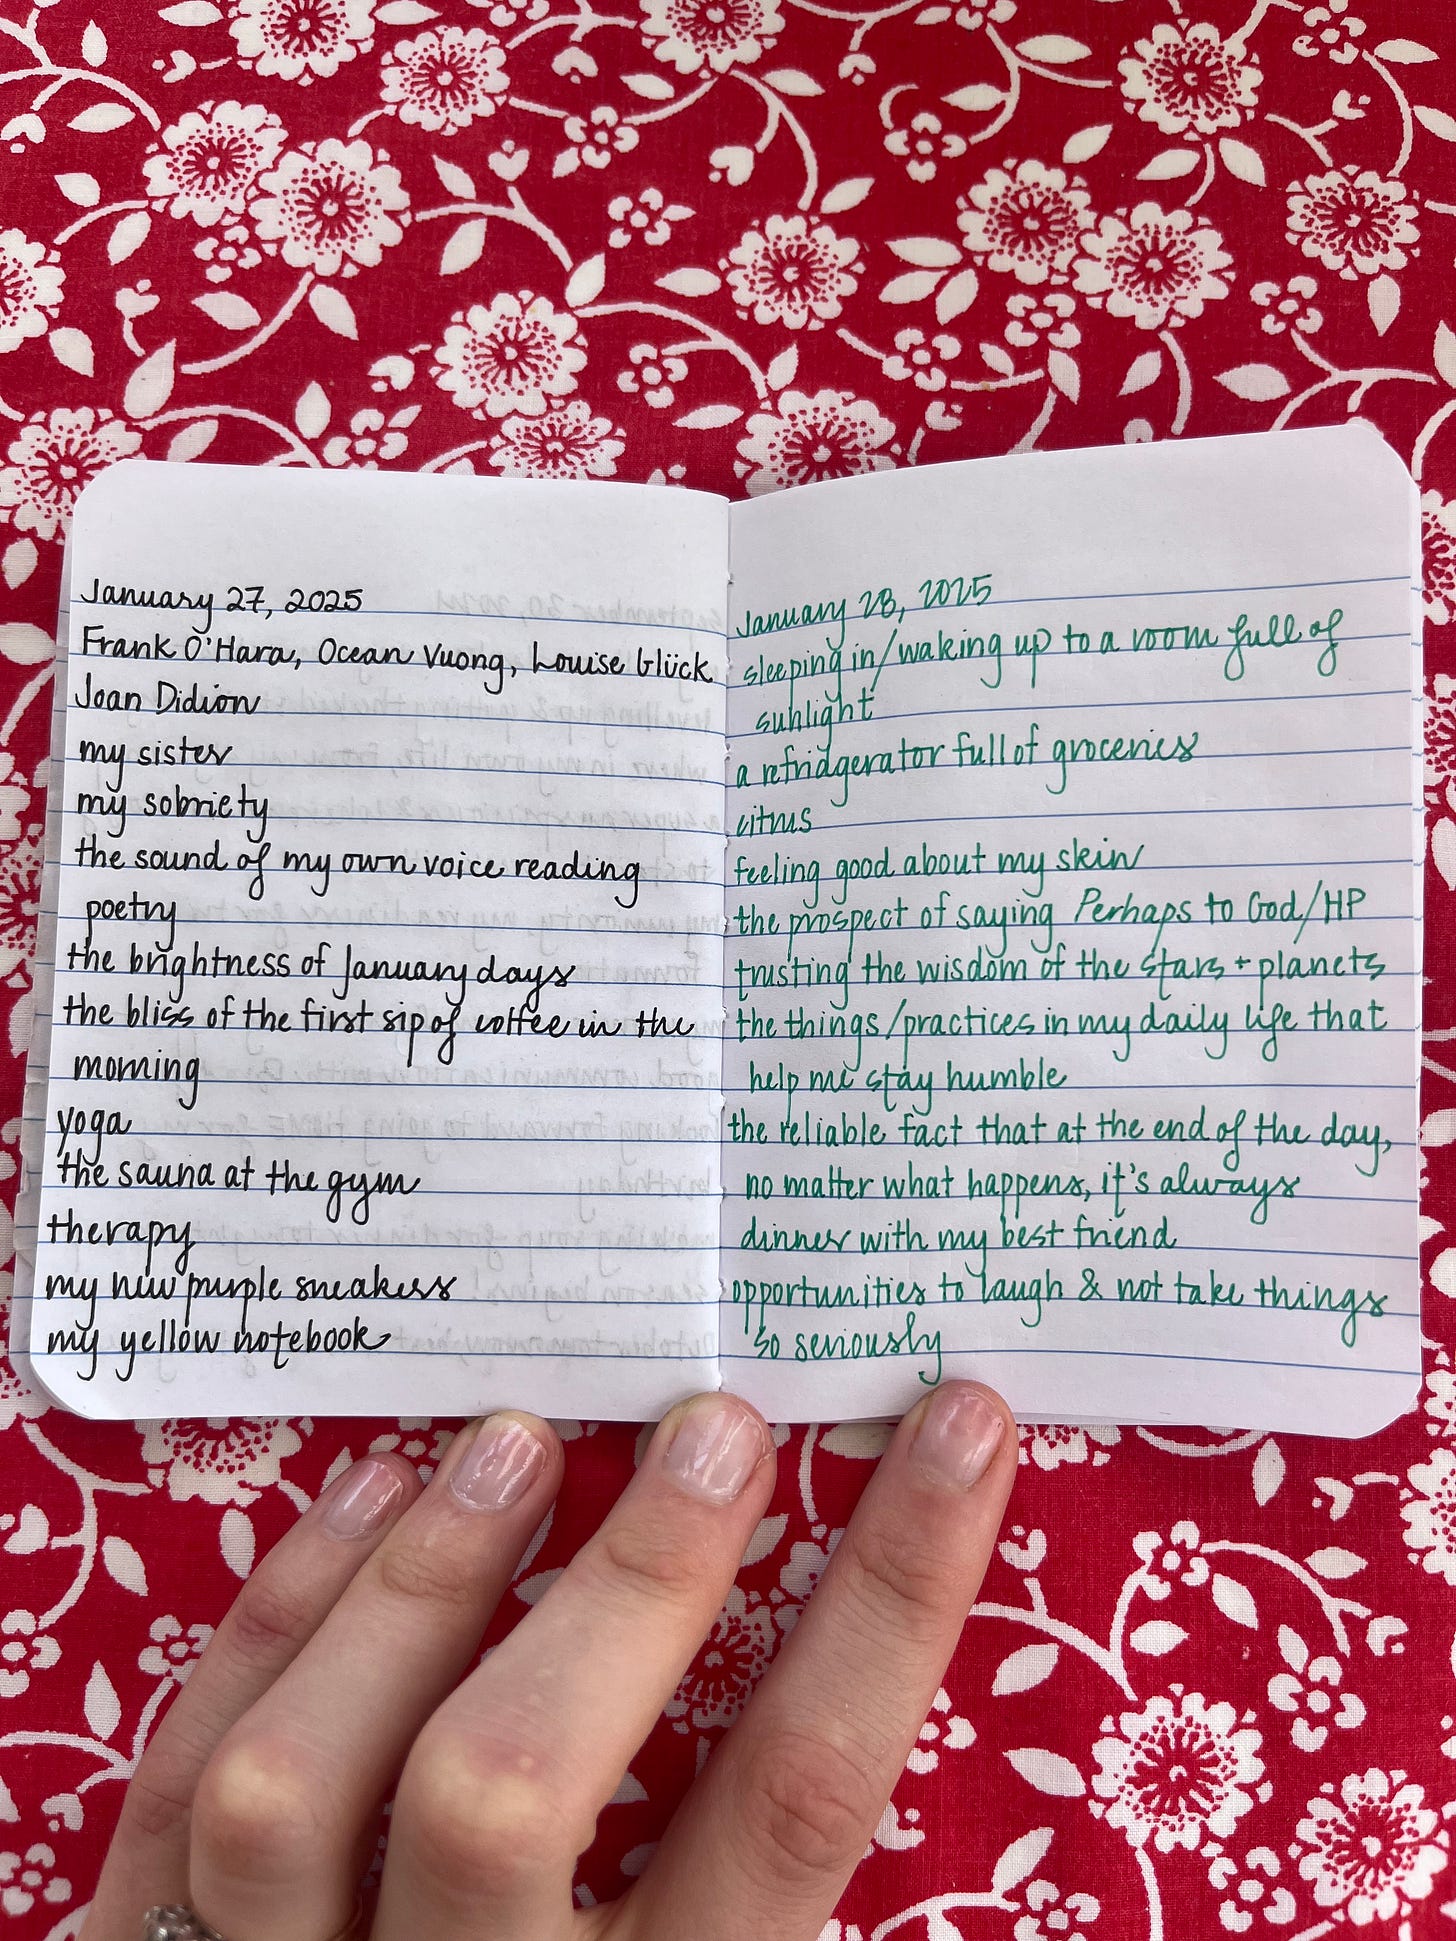 January 27, 2025
Frank O'Hara, Ocean Vuong, Louise Glück
Joan Didion
my sister
my sobriety
the sound of my own voice reading
poetry
the brightness of January days
the bliss of the first sip of coffee in the
morning
yoga
the sauna at the gym
therapy
my new purple sneakers
my yellow notebook
January 28, 2025
sleeping in/waking up to a room full of
sunlight
a refridgerator full of groceries
citrus
feeling good about my skin
the prospect of saying Perhaps to God/HP
trusting the wisdom of the stars + planets
the things/practices in my daily life that
help me stay humble
the reliable fact that at the end of the day,
no matter what happens, it's always
dinner with my best friend
opportunities to laugh & not take things
so seriously